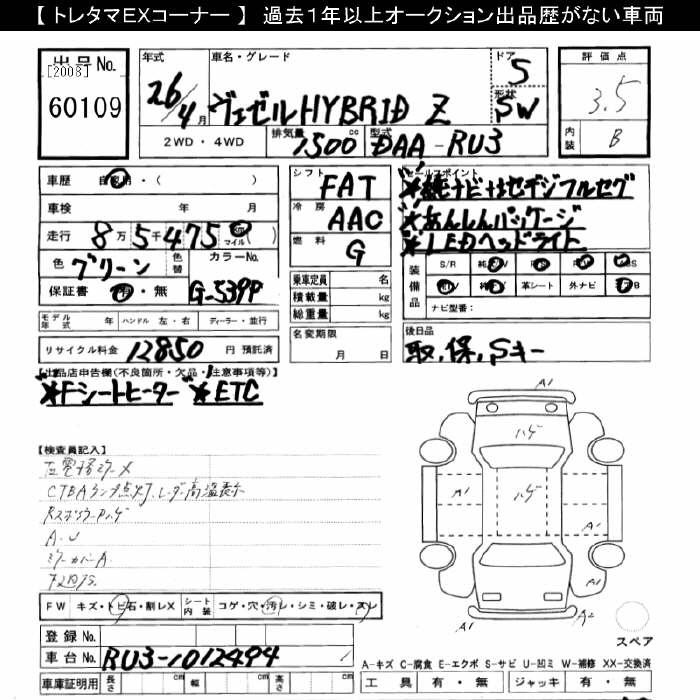 【 トレタマEXコーナー 】 過去１年以上オークション出品歴がない車両
出品No.
[2008]
60109
年式
26/4月
車名・グレード
ヴェゼルHYBRID Z
ドア
5
形状
SW
評価点
3.5
内装
B
2WD・4WD
排気量
1500cc
型式
DAA-RU3
車歴
自家用・( )
車検 年 月
走行 8万5千475 マイル( )
色
グリーン
色替
カラーNo.
G-539P
保証書 有・無
シフト
FAT
冷房
AAC
燃料
G
セールスポイント
※純ナビ+Bセデジフルセグ
※あんしんパッケージ
※LEDヘッドライト
装備品
S/R
革シート
外ナビ
ナビ型番:
乗車定員 名
積載量 kg
総重量 kg
名変期限
月 日
モデル年式 年
ハンドル 左・右
ディーラー・並行
リサイクル料金 12850 円 預託済
後日品
取.保.Sキー
【出品店申告欄(不良箇所・欠品・注意事項等)】
※Fシートヒーター ※ETC
【検査員記入】
A.U
ミラーカバーA
A1
ハゲ
A1
ハゲ
A1
A1
A1
A2
スペア
FW キズ・トビ石・割レX
シート内装 コゲ・穴・汚レ・シミ・破レ・スレ
登録No.
車台No.
RU3-1012494
車庫証明用
長さ cm
幅 cm
高さ cm
A-キズ C-腐食 E-エクボ S-サビ U-凹ミ W-補修 XX-交換済
工具 有・無 ジャッキ 有・無